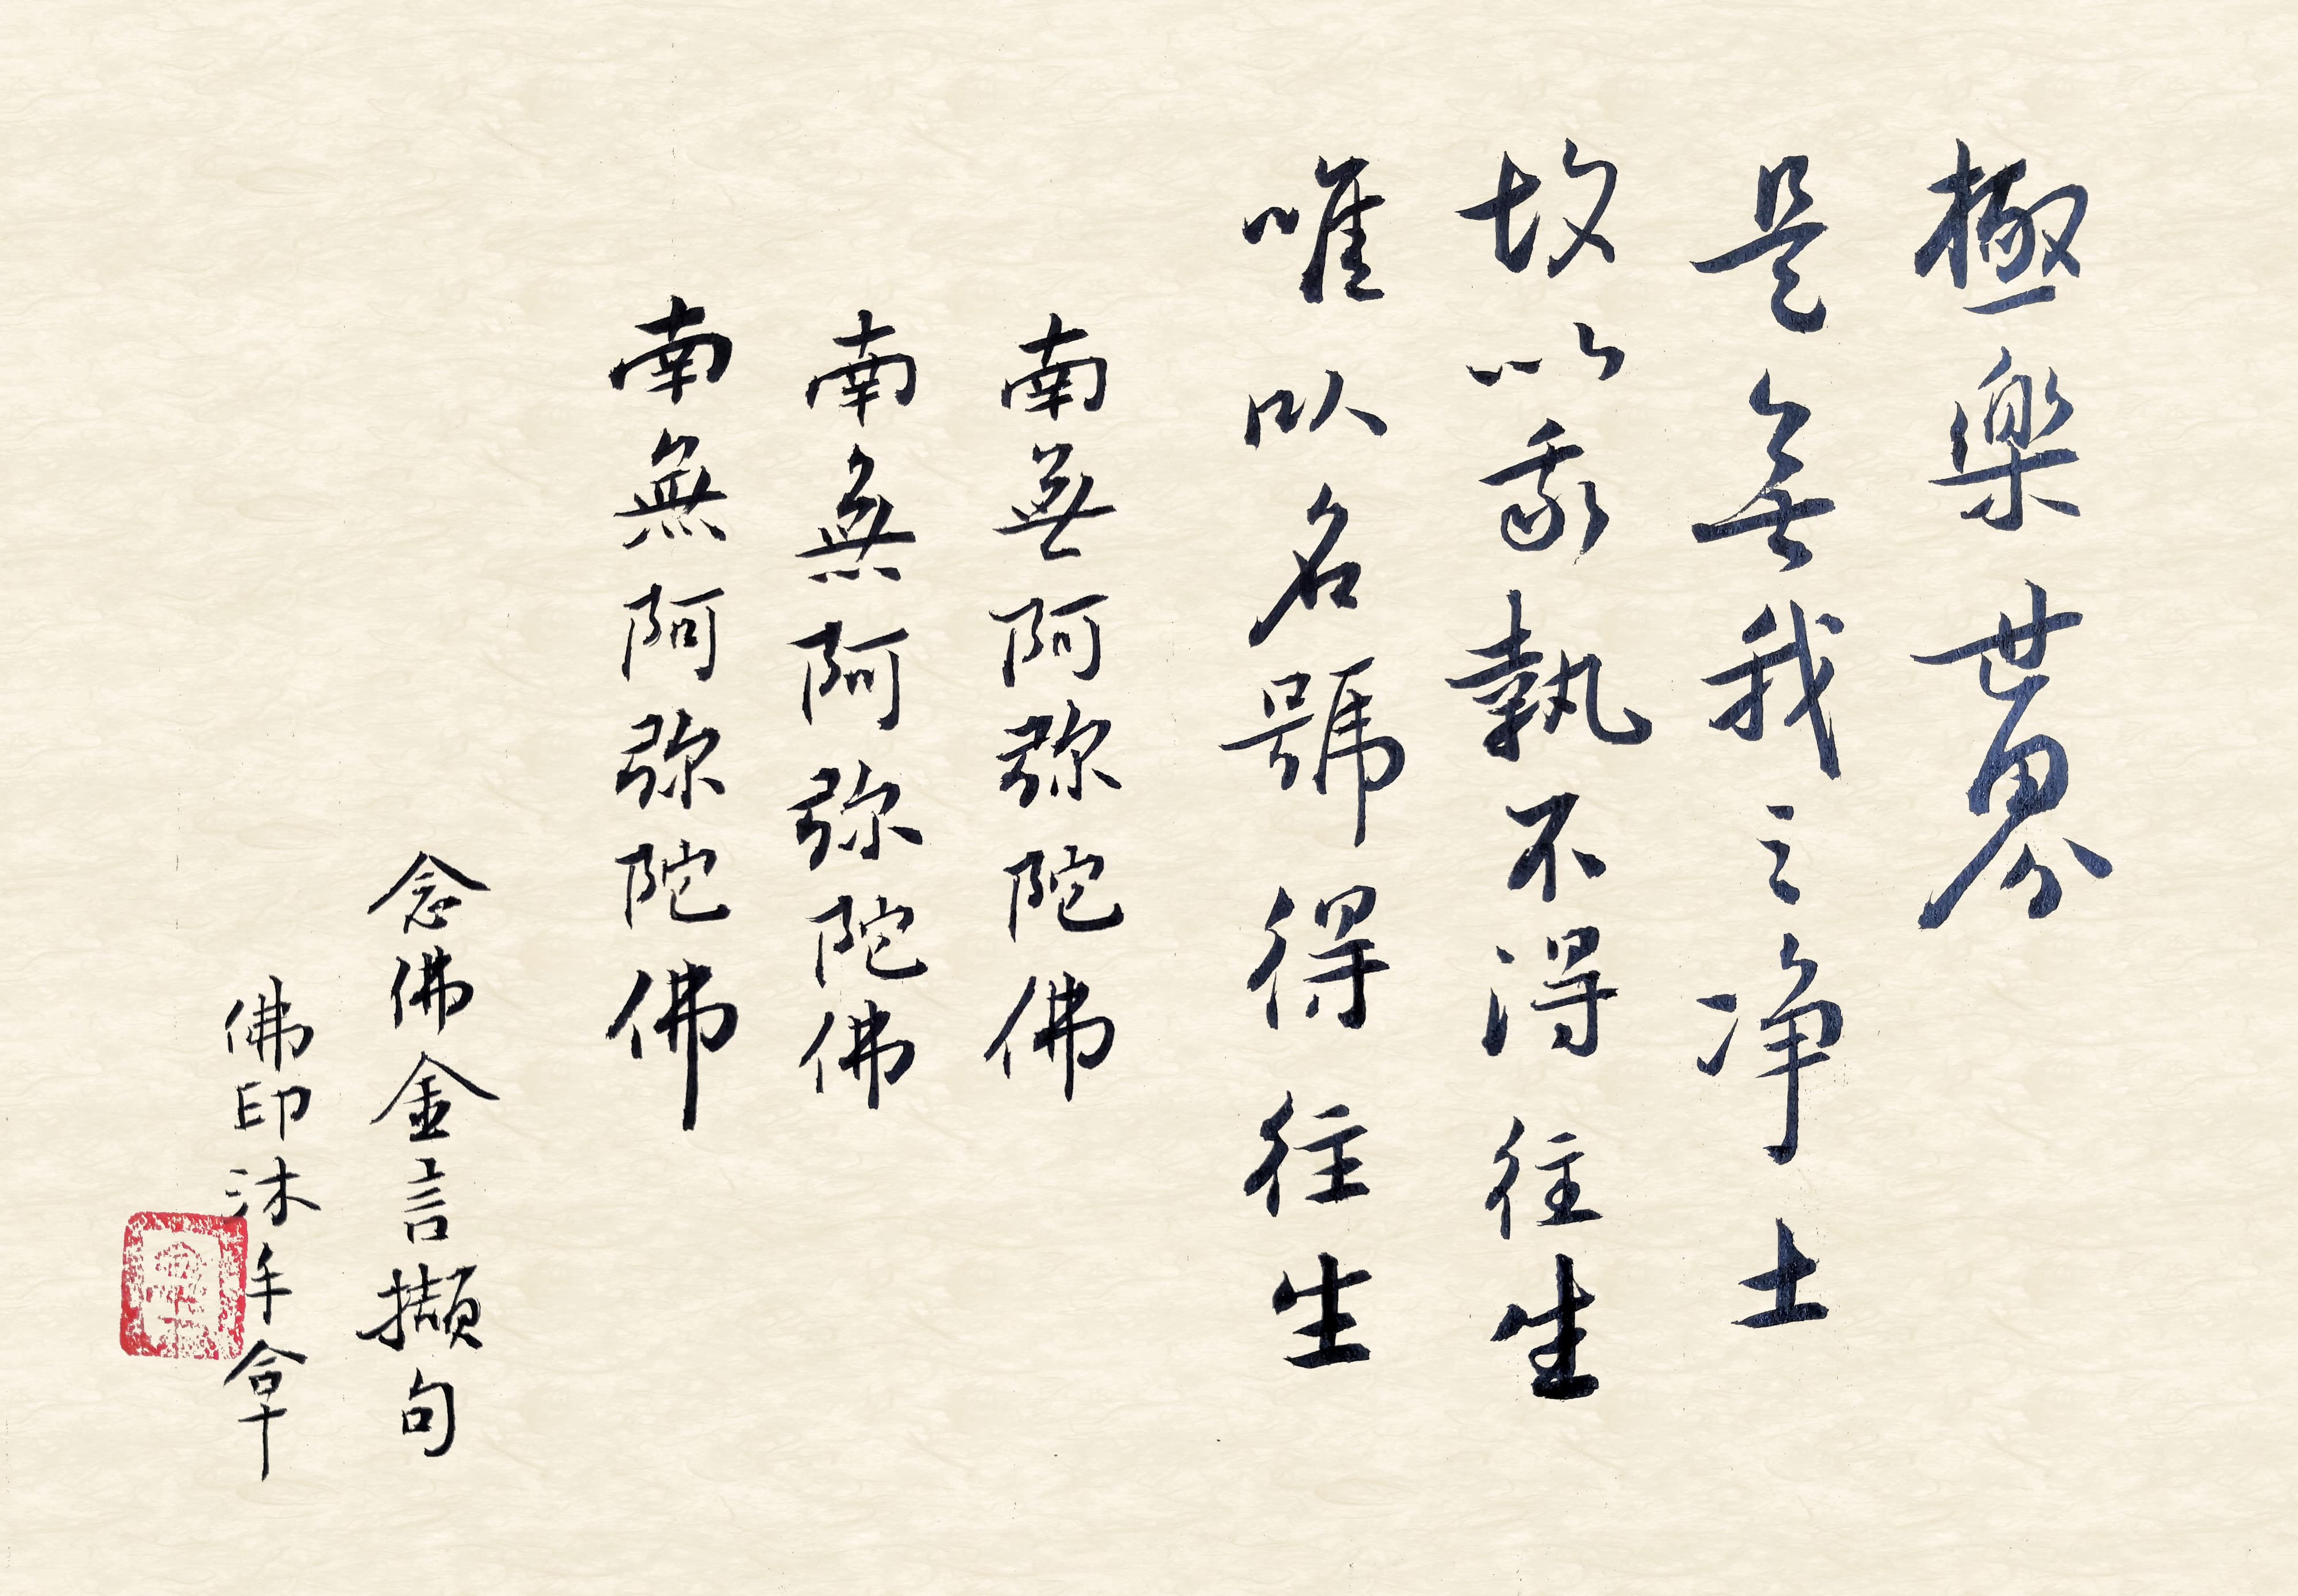 極樂世界
是無我之净土
故以我執不得往生
唯以名號得往生
南無阿弥陀佛
南無阿弥陀佛
南無阿弥陀佛
念佛金言擷句
佛印沐手拿